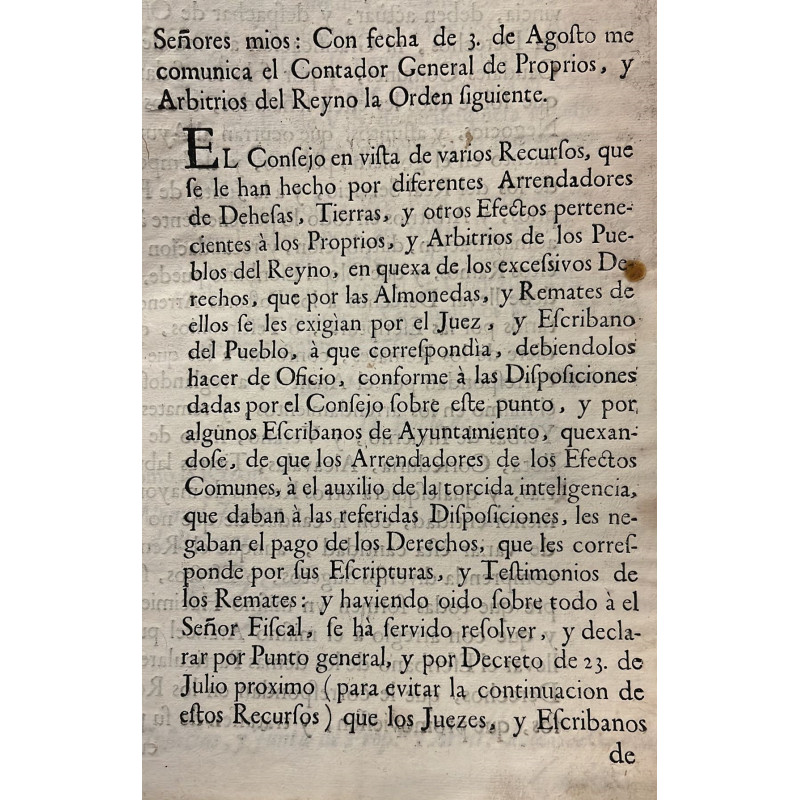 Señores mios: Con fecha de 3. de Agoſto me
comunica el Contador General de Proprios, y
Arbitrios del Reyno la Orden ſiguiente.
EL Conſejo en viſta de varios Recurſos, que
ſe le han hecho por diferentes Arrendadores
de Deheſas, Tierras, y otros Efectos pertene-
cientes à los Proprios, y Arbitrios de los Pue-
blos del Reyno, en quexa de los exceſsivos De-
rechos, que por las Almonedas, y Remates de
ellos ſe les exigìan por el Juez, y Eſcribano
del Pueblo, à que correſpondìa, debiendolos
hacer de Oficio, conforme à las Diſpoſiciones
dadas por el Conſejo ſobre eſte punto, y por
algunos Eſcribanos de Ayuntamiento, quexan-
doſe, de que los Arrendadores de los Efectos
Comunes, à el auxilio de la torcida inteligencia,
que daban à las referidas Diſpoſiciones, les ne-
gaban el pago de los Derechos, que les correſ-
ponde por ſus Eſcripturas, y Teſtimonios de
los Remates: y haviendo oido ſobre todo à el
Señor Fiſcal, ſe hà ſervido reſolver, y decla-
rar por Punto general, y por Decreto de 23. de
Julio proximo (para evitar la continuacion de
eſtos Recurſos) que los Juezes, y Eſcribanos
de